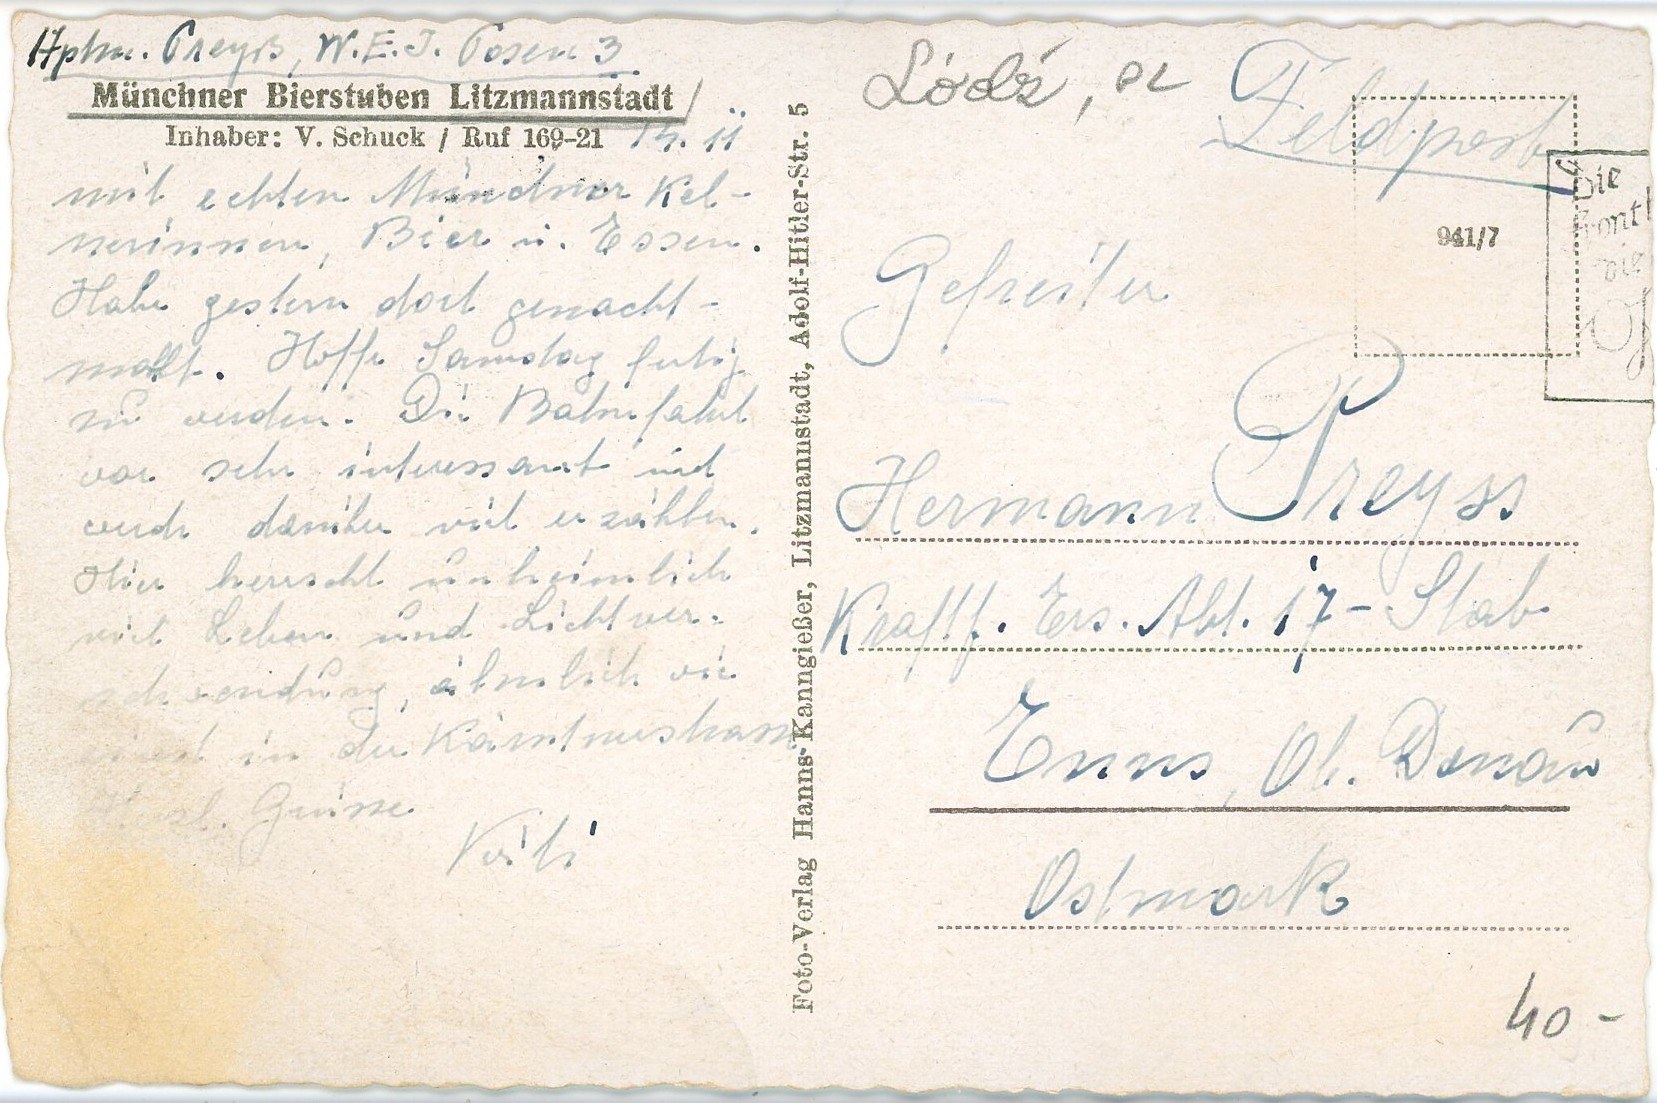 Hptm. Preyß, W.E.J. Posen 3
Münchner Bierstuben Litzmannstadt
Inhaber: V. Schuck / Ruf 169-21
mit echten Münchner Kel-
nerinnen, Bier u. Essen.
Habe gestern dort genacht-
mahlt. Hoffe Samstag fertig
zu werden. Die Bahnfahrt
war sehr interessant und
werde darüber viel erzählen.
Hier herrscht unheimlich
viel Leben und Lichtver-
schwendung, ähnlich wie
einst in der Kärntnerstrasse
Herzl. Grüsse
Willi
Foto-Verlag Hanns Kanngießer, Litzmannstadt, Adolf-Hitler-Str. 5
Łódź, PL
Feldpost
941/7
Die
Front
wie
Gefreiter
Hermann Preyss
Kraftf. Ers. Abt. 17 - Stab
Enns, Ob. Donau
Ostmark
40 -